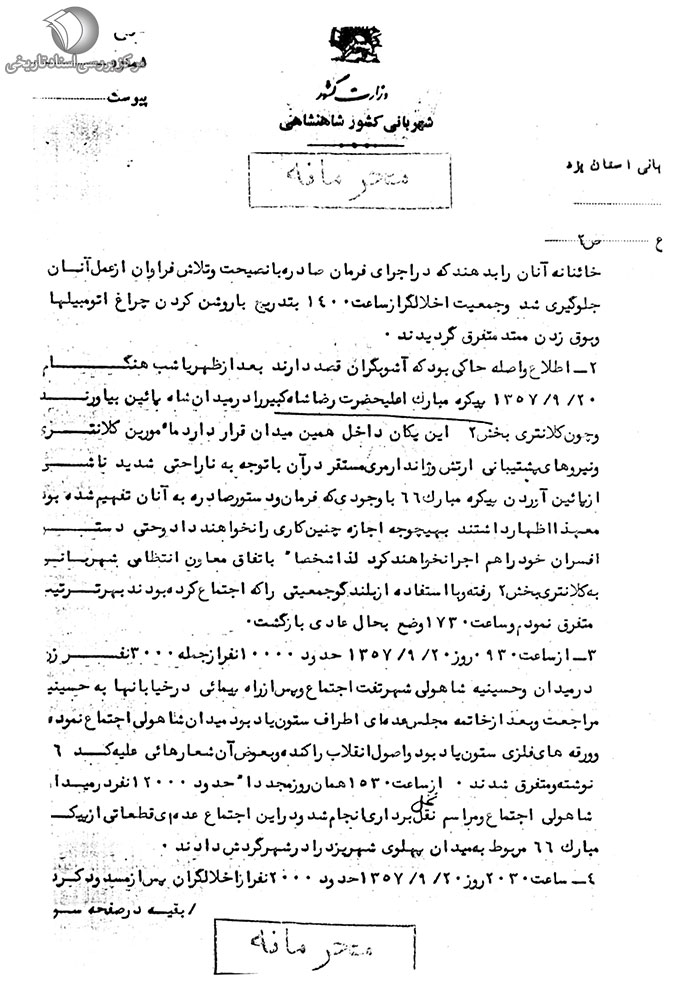 مرکز بررسی اسناد تاریخی
پیوست
وزارت کشور
شهربانی کشور شاهنشاهی
محرمانه
بانی استان یزد
ع ص۲
خائنانه آنان را بدهند که در اجرای فرمان صادره با نصیحت و تلاش فراوان از عمل آنان
جلوگیری شد وجمعیت اخلالگر از ساعت ۱۴۰۰ بتدریج با روشن کردن چراغ اتومبیلها
وبوق زدن ممتد متفرق گردیدند ۰
۲ـ اطلاع واصله حاکی بود که آشوبگران قصد دارند بعد از ظهر یا شب هنگام
۲۰/ ۹/ ۱۳۵۷ پیکره مبارک اعلیحضرت رضا شاه کبیر را در میدان شاه پائین بیاورند
وچون کلانتری بخش ۲ این یکان داخل همین میدان قرار دارد مأمورین کلانتری
ونیروهای پشتیبانی ارتش وژاندارمری مستقر در آن با توجه به ناراحتی شدید ناشی
از پائین آوردن پیکره مبارک ۶۶ با وجودی که فرمان و دستور صادره به آنان تفهیم شده بود
معهذا اظهار داشتند بهیچوجه اجازه چنین کاری را نخواهند داد وحتی دستور
افسران خود را هم اجرا نخواهند کرد لذا شخصا" باتفاق معاون انتظامی شهربانی
به کلانتری بخش ۲ رفته و با استفاده از بلندگو جمعیتی را که اجتماع کرده بودند بهر ترتیب
متفرق نمودم و ساعت ۱۷۳۰ وضع بحال عادی بازگشت۰
۳ـ از ساعت ۰۹۳۰ روز ۲۰/ ۹/ ۱۳۵۷ حدود ۱۰۰۰۰ نفر از جمله ۳۰۰۰ نفر زن
در میدان وحسینیه شاه ولی شهر تفت اجتماع وپس از راه پیمائی در خیابانها به حسینیه
مراجعت و بعد از خاتمه مجلس عده ای اطراف ستون یاد بود میدان شاه ولی اجتماع نموده
وورقه های فلزی ستون یاد بود واصول انقلاب را کنده و بعوض آن شعارهائی علیه کد ۶
نوشته و متفرق شدند ۰ از ساعت ۱۵۳۰ همان روز مجددا" حدود ۱۲۰۰۰ نفر در میدان
شاه ولی اجتماع و مراسم نخل برداری انجام شد و در این اجتماع عده ای قطعاتی از پیکره
مبارک ۶۶ مربوط به میدان پهلوی شهر یزد را در شهر گردش دادند ۰
۴ـ ساعت ۲۰۳۰ روز ۲۰/ ۹/ ۱۳۵۷ حدود ۲۰۰۰ نفر از اخلالگران پس از مسدود کردن
/ بقیه در صفحه سو
محرمانه